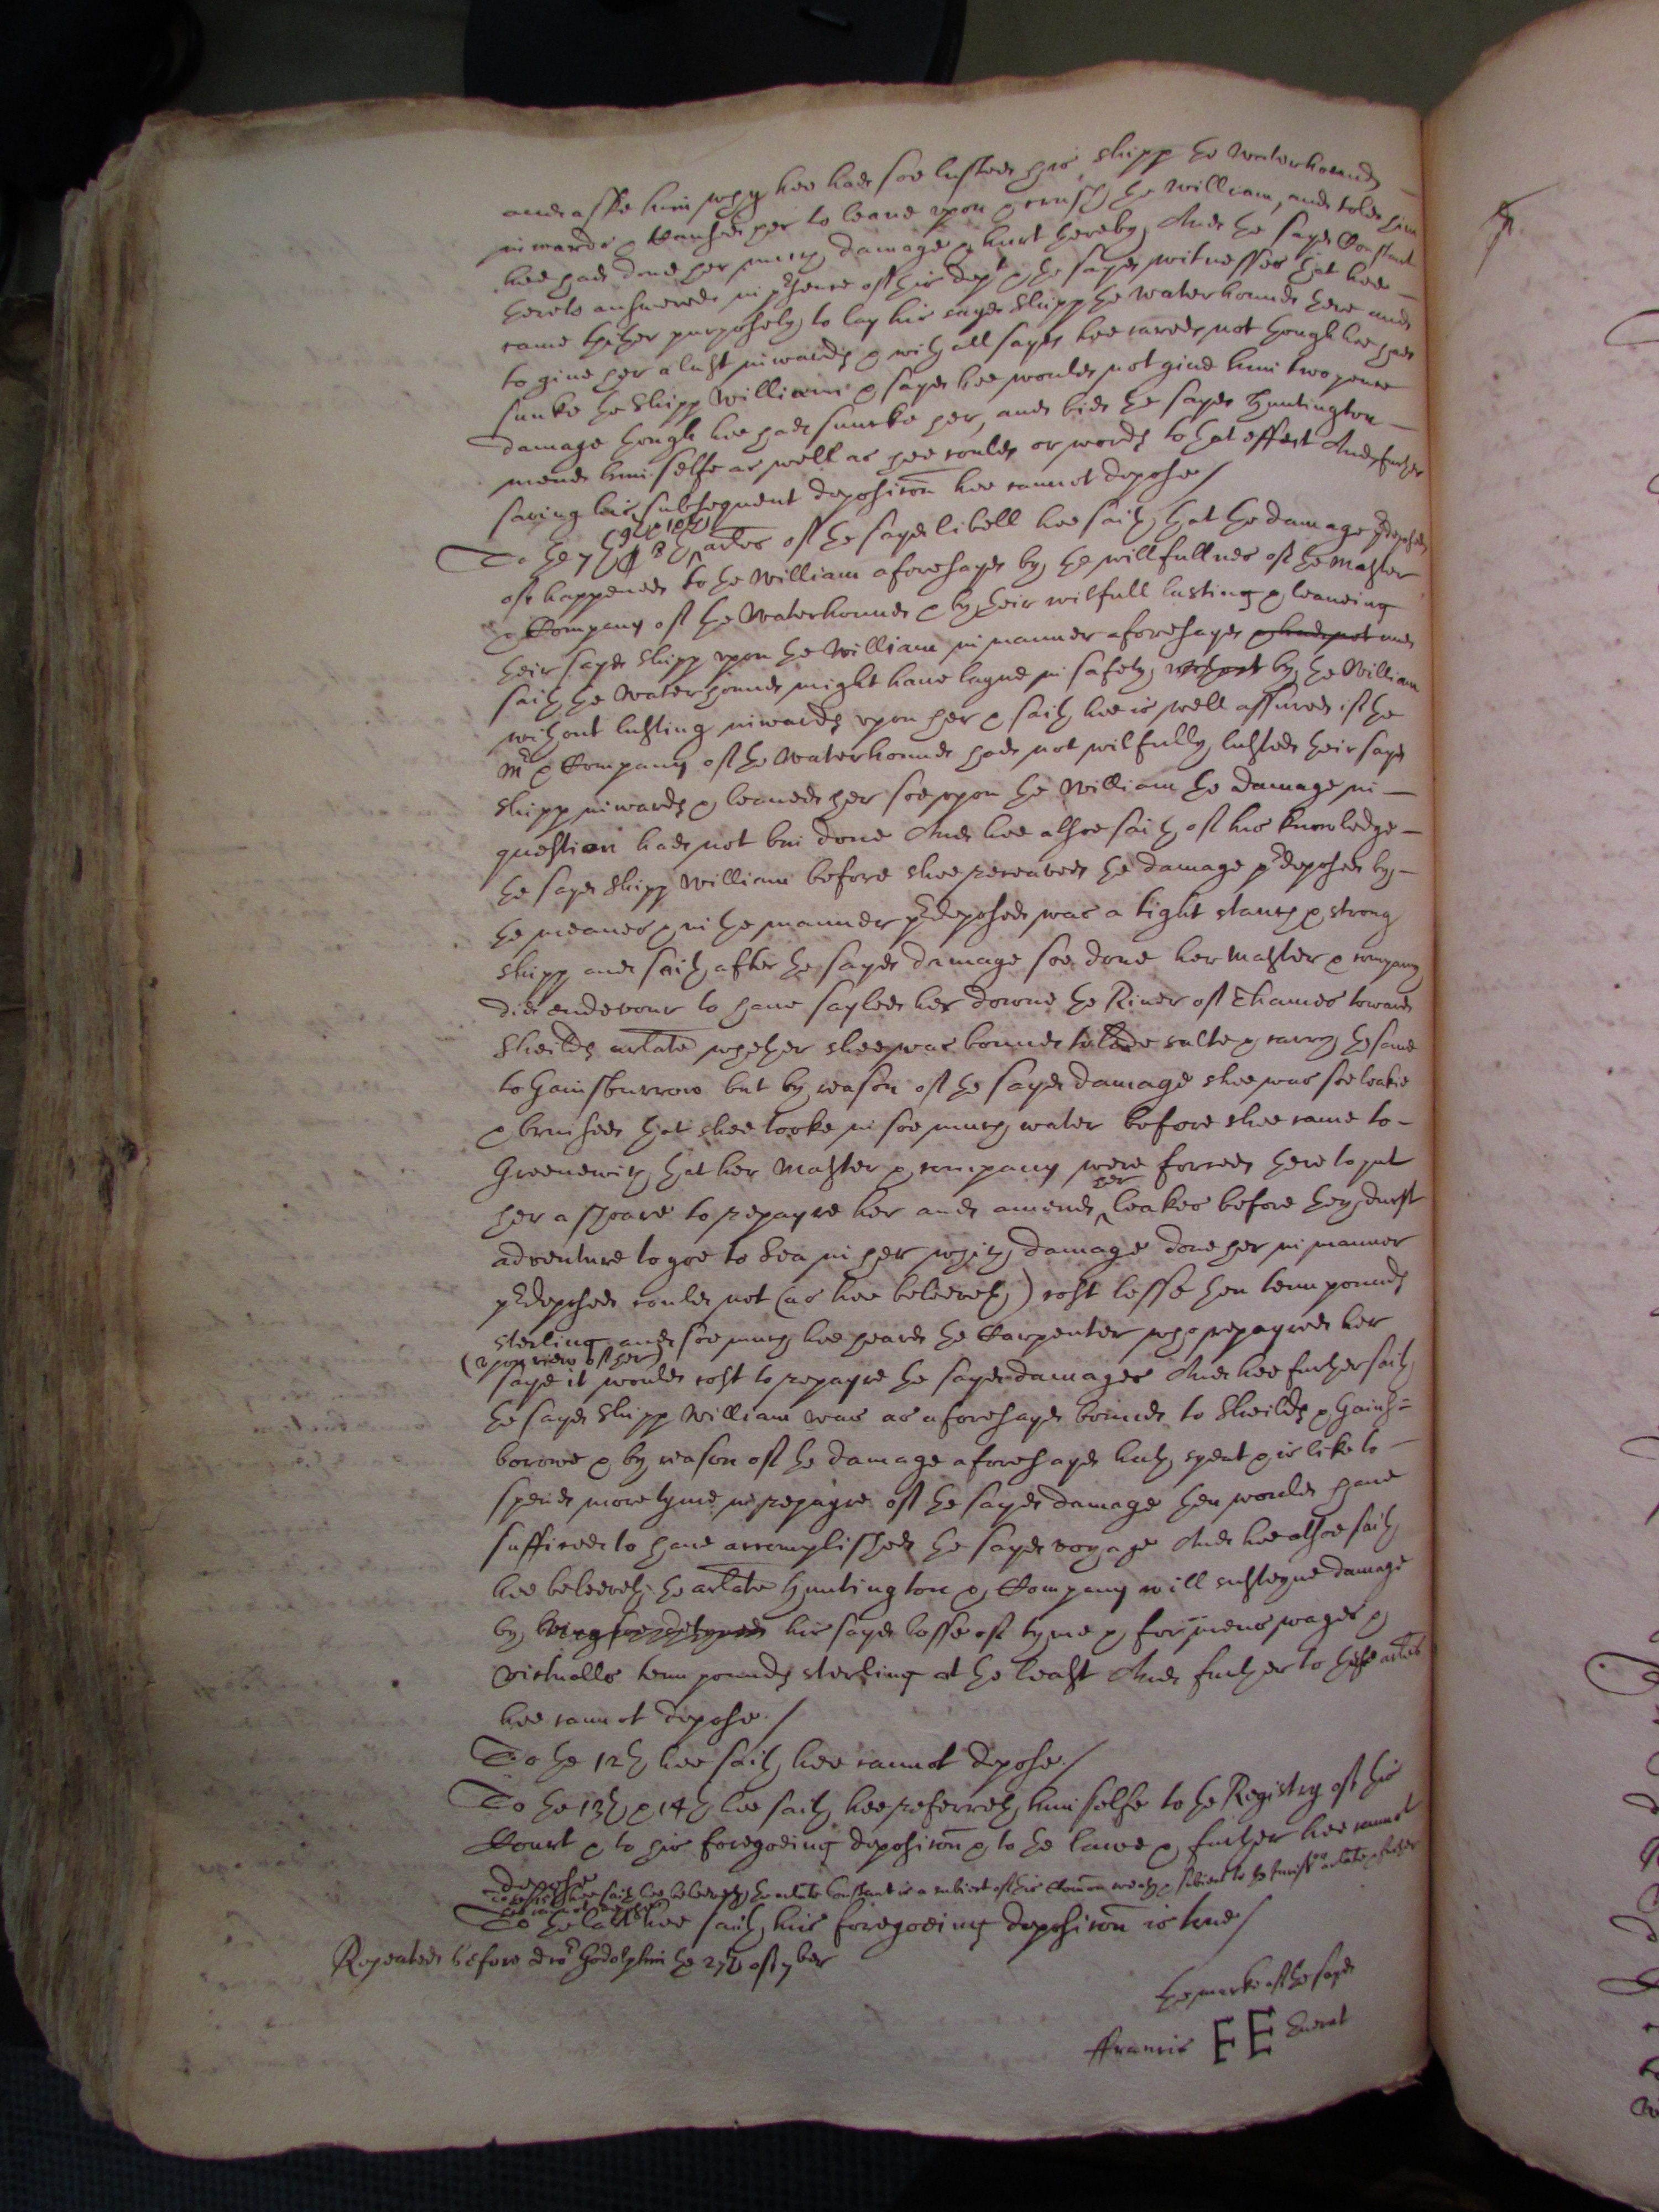 and aske him why hee had soe lusted his shipp the Waterhound
inwards & caused her to leane upon & crush the William, and told him
hee had done her much damage & hurt thereby, And the sayd Constant
thereto answered in presence of this depont & the sayd witnesses that hee
came thither purposely to lay his sayd shipp the Waterhound there and
to give her a lust inwards & withall sayd hee cared not though hee had
sunke the shipp William & sayd hee would not give him two pence
damage though hee had suncke her, and bid the sayd Huntington
mend himselfe as well as hee could or words to that effect And further
saving his subsequent deposicon hee cannot depose/
To the 7th 8th 9th & 10th arles of the sayd libell hee saith that the damage predeposed
of happened to the William aforesayd by the willfullnes of the Master
& Company of the Waterhound & by their wilfull lusting & leaneing
their sayd shipp upon the William in manner aforesayd and
saith the Waterhound might have layne in safety by the William
without lusting inwards upon her & saith hee is well assured if the
Mr & Company of the Waterhound had not wilfully lusted their sayd
shipp inwards & leaned her soe upon the William the damage in
question had not bin done And hee alsoe saith of his knowledge
the sayd shipp William before shee receaved the damage predeposed by
the meanes & in the manner predeposed was a tight stanch & strong
shipp and saith after the sayd damage soe done her Master & company
did endevour to have sayled her downe the River of Thames towards
Sheilds arlate whether shee was bound to lade salte & carry the same
to Gainsburrow but by reason of the sayd damage shee was soe leakie
& bruised that shee tooke in soe much water before shee came to
Greenewich that her Master & company were forced there to put
her a shoare to repayre her and amend her leakes before they durst
adventure to goe to Sea in her which damage done her in manner
predeposed could not (as hee beleeveth) cost lesse then tenn pounds
sterling and soe much hee heard the Carpenter who repayred her
(upon view of her)
saye it would cost to repayre the sayd damages And hee further saith
the sayd shipp William was as aforesayd bound to Sheilds & Gains=
borowe & by reason of the damage aforesayd hath spent & is like to
spend more tyme in repayre of the sayd damage then would have
sufficed to have accomplished the sayd voyage And hee alsoe saith
hee beleeveth the arlate Huntington & Company will susteyne damage
by his sayd losse of tyme & for mens wages &
victualls tenn pounds sterling at the least And further to these arles
hee cannot depose./
To the 12th hee saith hee cannot depose./
To the 13th & 14th hee saith hee referreth himselfe to the Registry of this
Court & to his foregoeing deposicon & to the lawe & further hee cannot
depose
To the hee saith hee beleeveth the arlate Constant is a subiect of this Common wealth & subiect to the Jurisdon arlate & further
hee cannot depose
To the last hee saith his foregoeing deposicon is true/
Repeated before dr Godolphin the 27th of 7ber
the marke of the sayd
ffrancis FE Everat